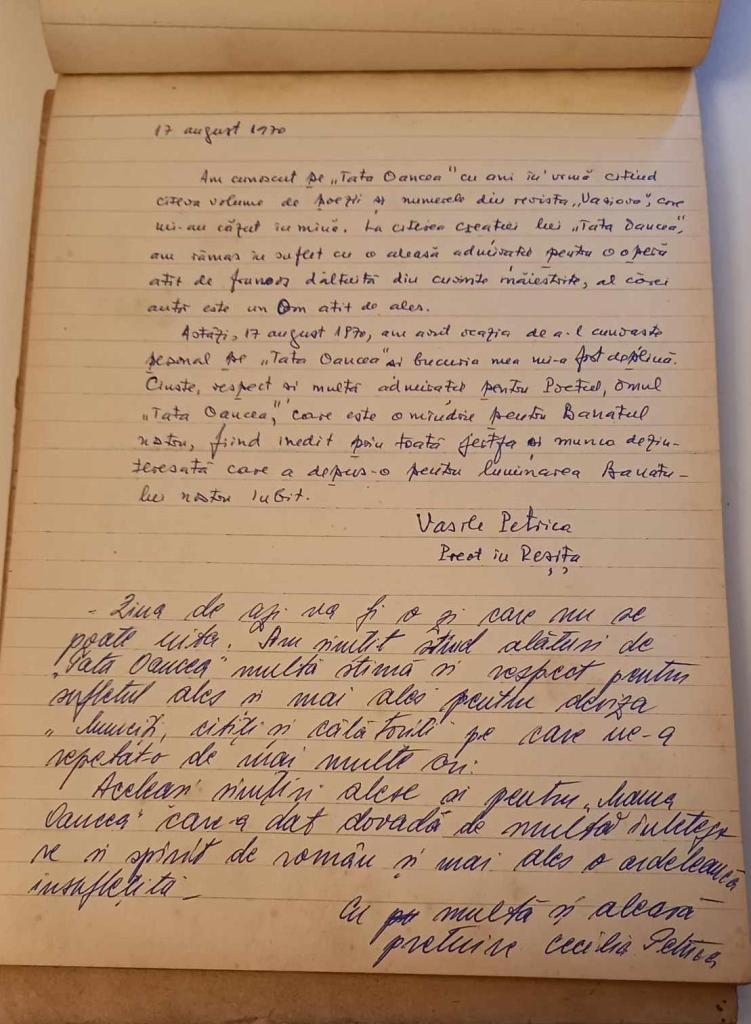 17 august 1970
Am cunoscut pe „Tata Oancea" cu ani în urmă citind
citeva volume de poezii si numerele din revista „Vasiova", care
mi-au căzut în mină. La citirea creatiei lui „Tata Oancea",
am rămas în suflet cu o aleasă admiratie pentru o operă
atit de frumos dăltuită din cuvinte măiestrite, al cărei
autor este un Om atit de ales.
Astăzi, 17 august 1970, am avut ocazia de a-l cunoaste
pesonal pe „Tata Oancea" si bucuria mea mi-a fost deplină.
Cinste, respect si multă admiratie pentru Poetul, omul
„Tata Oancea", care este o mindrie pentru Banatul
nostru, fiind inedit prin toată jertfa si munca dezin-
teresată care a depus-o pentru luminarea Banatu-
lui nostru iubit.
Vasile Petrica
Preot în Reșița
- Ziua de azi va fi o zi care nu se
poate uita. Am simtit stînd alături de
„Tata Oancea" multă stimă si respect pentru
sufletul ales si mai ales pentru deviza
„Munciți, citiți si călătoriti" pe care ne-a
repetat-o de mai multe ori.
Aceleasi simțiri alese si pentru „Mama
Oancea" care-a dat dovadă de multă intelege
re si spirit de român și mai ales o ardeleancă
insuflețită -
Cu multă și aleasă
pretuire Cecilia Petrica